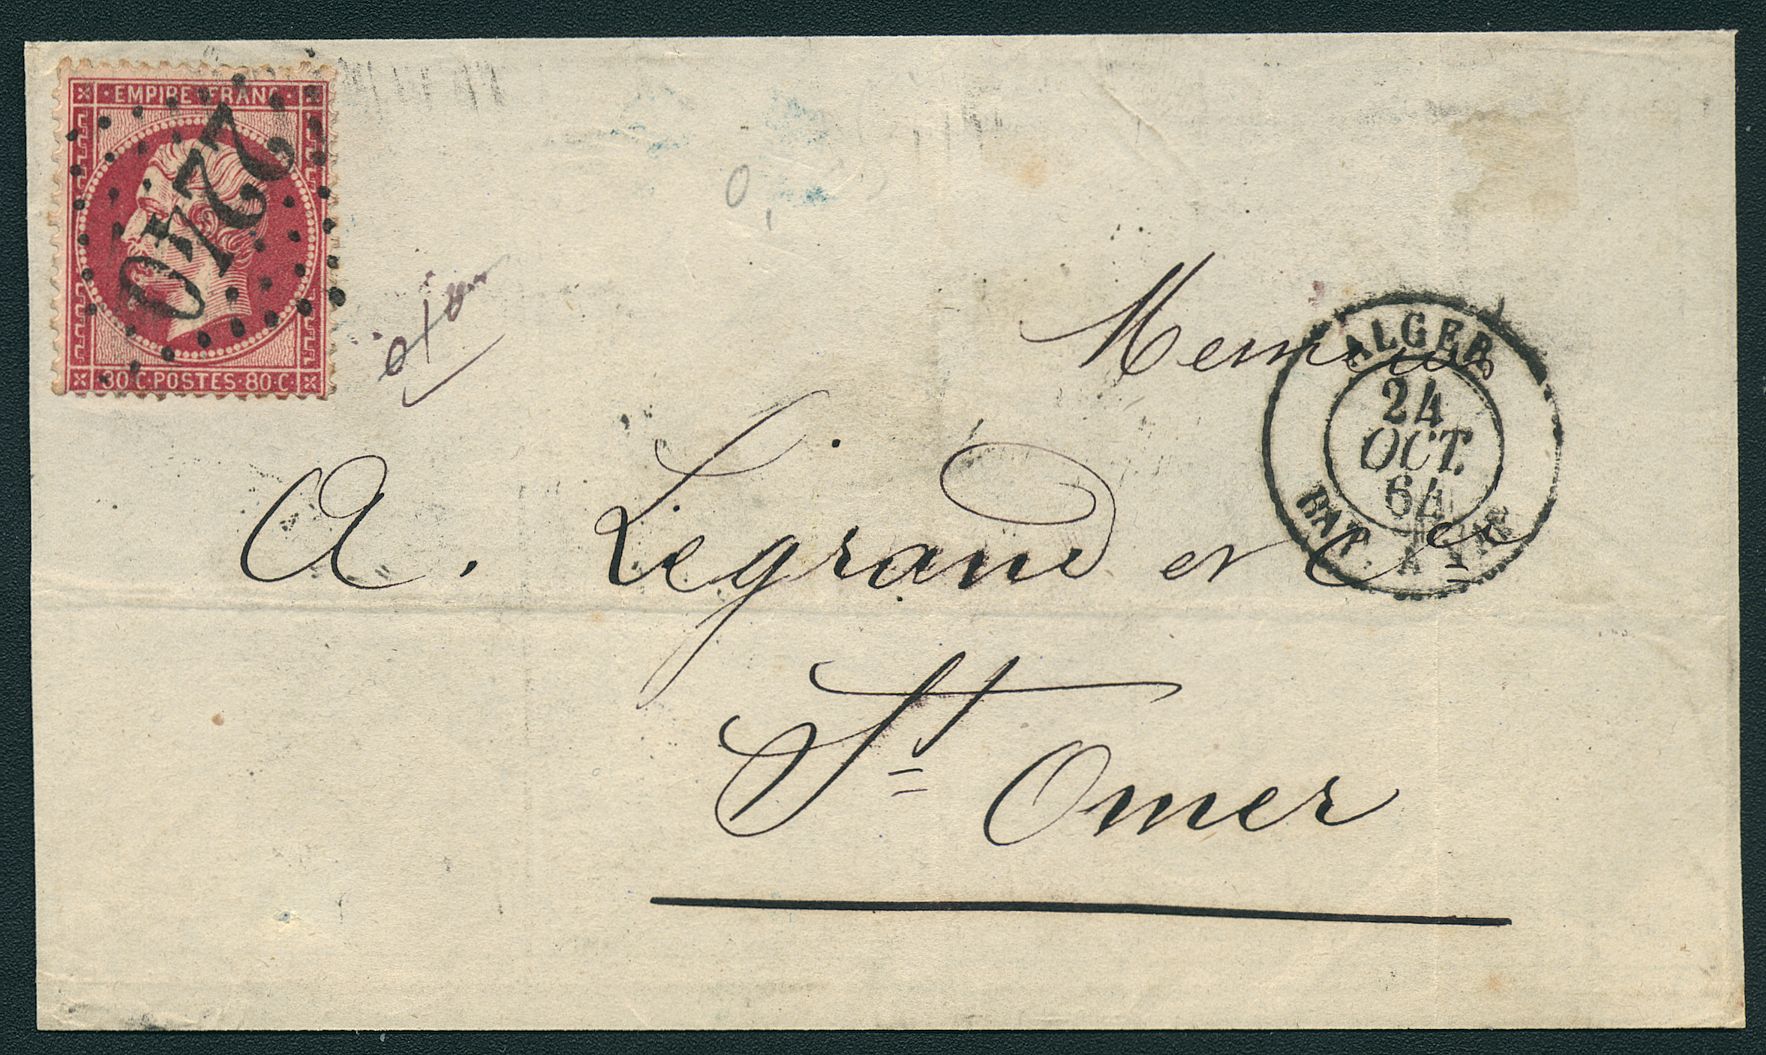 EMPIRE FRANC
2240
80·C·POSTES·80·C
ALGER
24
OCT.
64
BAT. A VAP
Messieurs
A. Legrand et Cie
St Omer